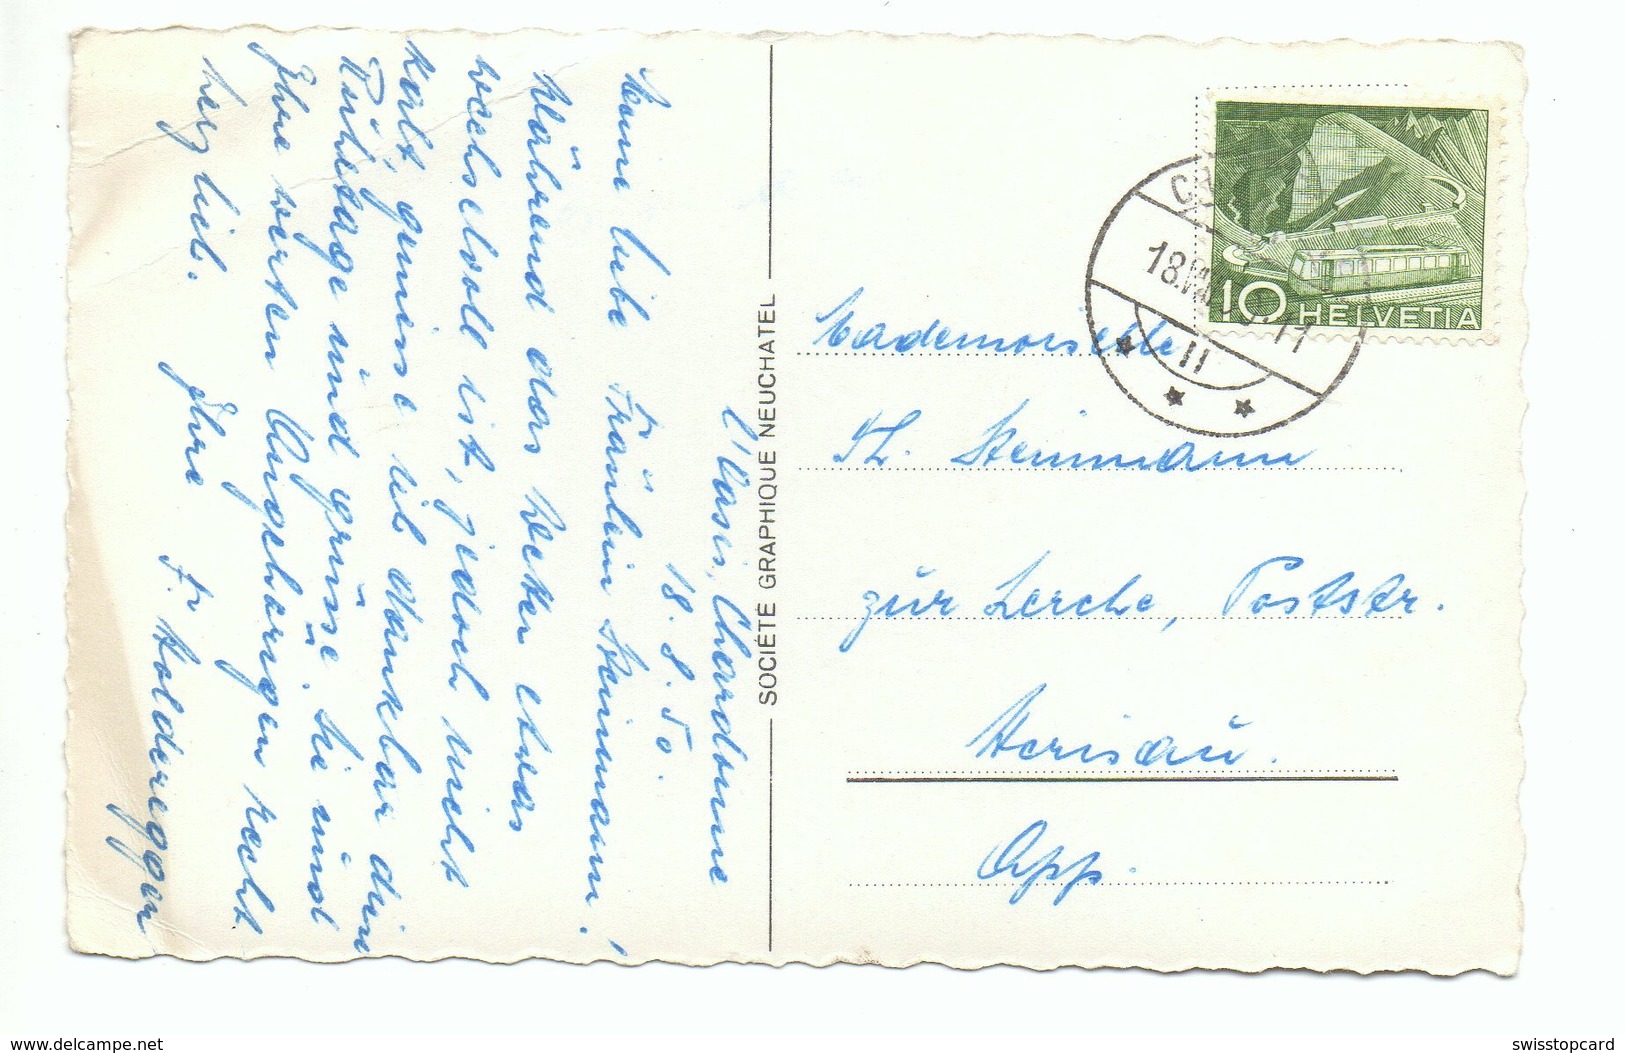 L'Oasis, Chardonne
18. 8. 50.
Meine liebe Fräulein Steinmann!
Während das Wetter etwas
wechselvoll ist, jedoch nicht
kalt, geniesse ich dankbar die
Ruhetage und grüsse Sie und
Ihre werten Angehörigen recht
herzlich. Ihre F. Holderegger
SOCIÉTÉ GRAPHIQUE NEUCHATEL
10 HELVETIA
18. 11
11
Mademoiselle
Th. Steinmann
zur Lerche, Poststr.
Herisau.
App.
www.delcampe.net
swisstopcard